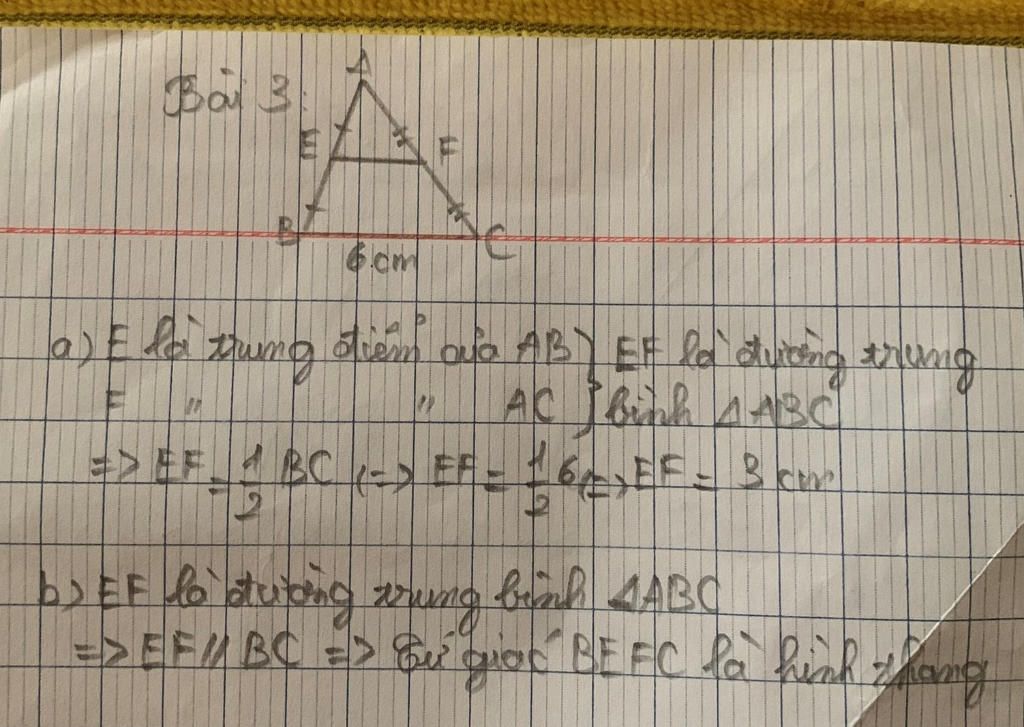 Bài 3:
A
E F
B C
6 cm
a) E là trung điểm của AB } EF là đường trung
F " " AC } bình ΔABC
=> EF = 1/2 BC (=> EF = 1/2 6 (=> EF = 3 cm
b) EF là đường trung bình ΔABC
=> EF // BC => Tứ giác BEFC là hình thang